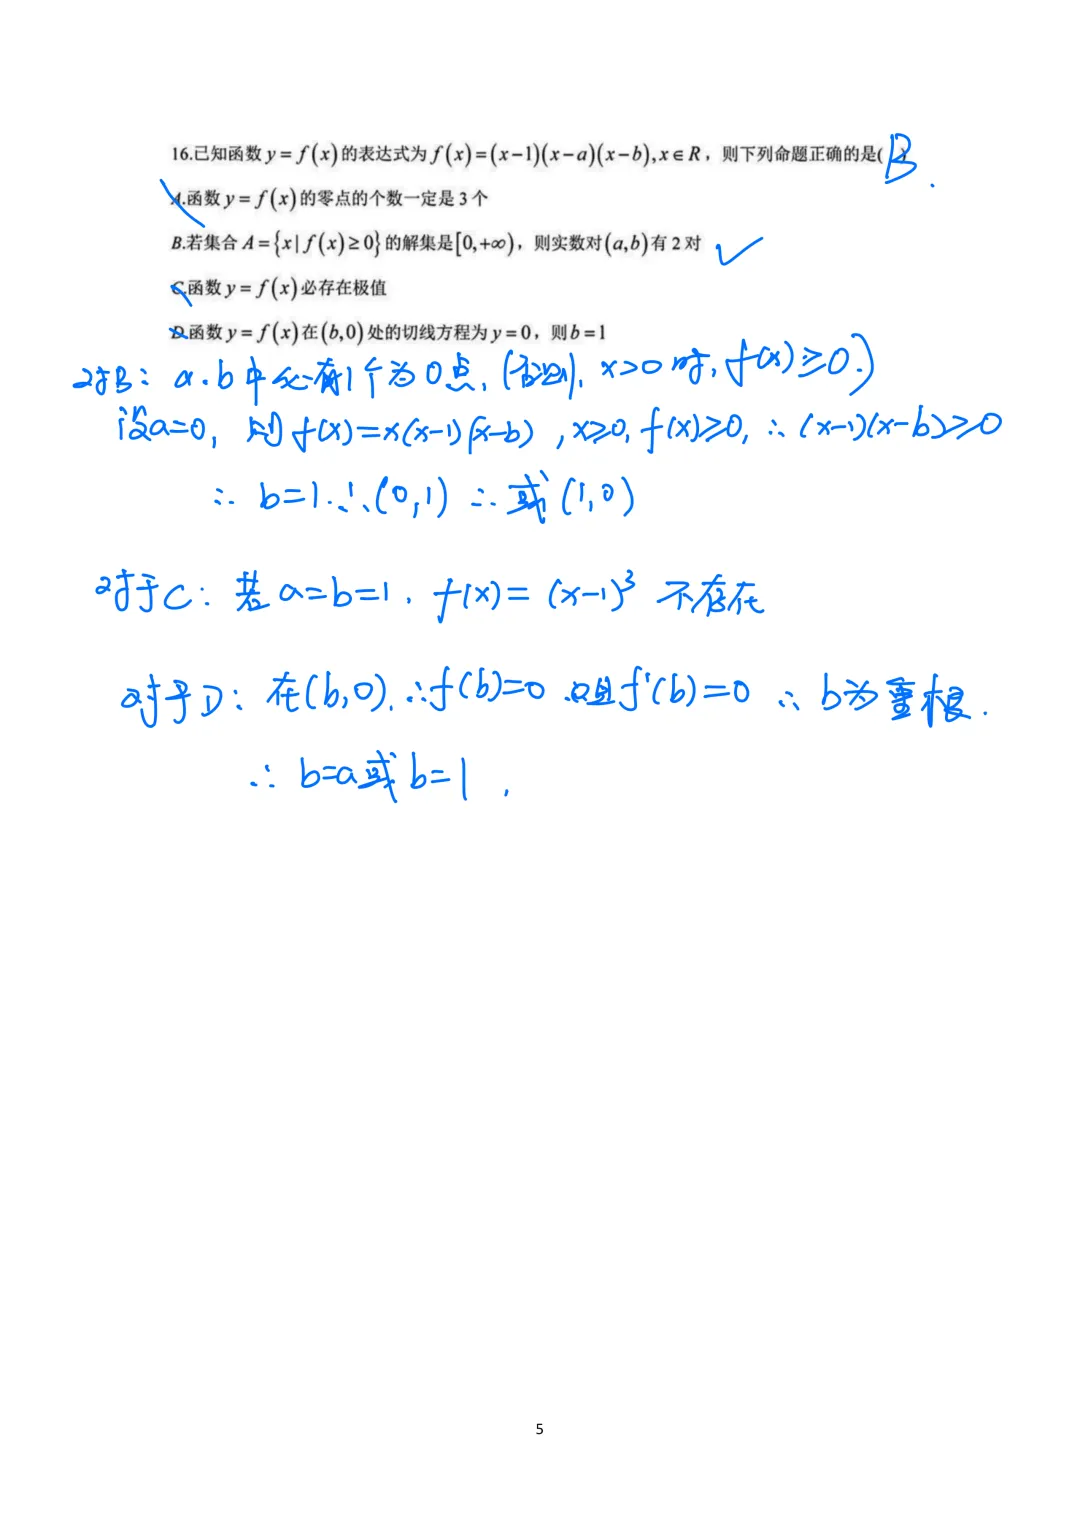 16.已知函数 y = f(x) 的表达式为 f(x) = (x-1)(x-a)(x-b), x∈R，则下列命题正确的是( ) B.
A.函数 y = f(x) 的零点的个数一定是 3 个
B.若集合 A = {x | f(x) ≥ 0} 的解集是 [0,+∞)，则实数对 (a,b) 有 2 对 ✓
C.函数 y = f(x) 必存在极值
D.函数 y = f(x) 在 (b,0) 处的切线方程为 y = 0，则 b = 1
对B: a.b中必有1个为0点, (否则, x>0时, f(x)≥0.)
设a=0, 则f(x)=x(x-1)(x-b), x≥0, f(x)≥0, ∴(x-1)(x-b)≥0
∴ b=1. ∴(0,1) ∴或(1,0)
对于C: 若a=b=1, f(x)=(x-1)³ 不存在
对于D: 在(b,0), ∴f(b)=0 且f'(b)=0 ∴ b为重根.
∴ b=a或b=1.
5